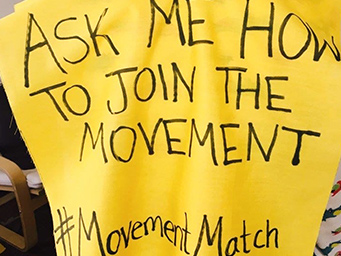 ASK ME HOW
TO JOIN THE
MOVEMENT
#MovementMatch